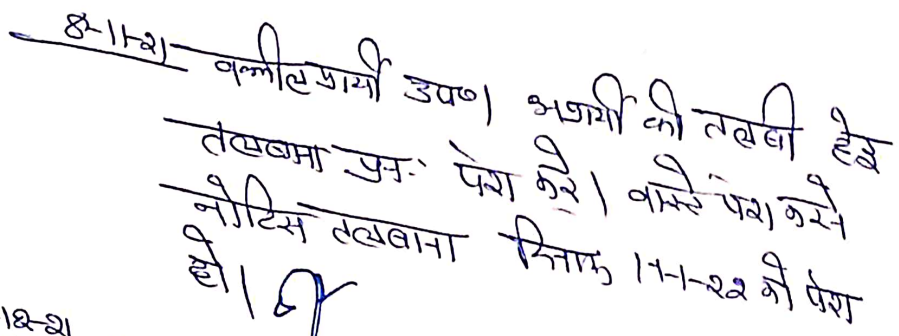 8-11-21 वकील प्रार्थी उप०। अप्रार्थी की तलबी हेतु
तलबाना पुनः पेश करे। वास्ते पेश करने
नोटिस तलबाना दिनांक 11-1-22 को पेश
हो।
12-21